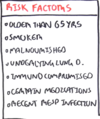 RISK FACTORS
• OLDER THAN 65 YRS
• SMOKER
• MALNOURISHED
• UNDERLYING LUNG D.
• IMMUNOCOMPROMISED
• CERTAIN MEDICATIONS
• RECENT RESP INFECTION